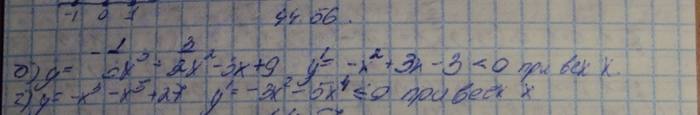 -1 0 1 44.56.
б) y = -1/3x³ + 3/2x² - 3x + 9 y' = -x² + 3x - 3 < 0 при всех x.
г) y = -x³ - x⁵ + 27 y' = -3x² - 5x⁴ ≤ 0 при всех x